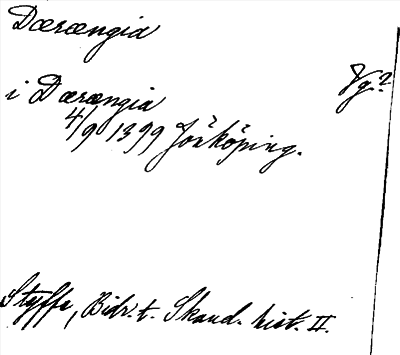 Dæræængia
Vg.?
i Dæræængia
4/9 1399 Jönköping.
Styffe, Bidr. t. Skand. hist. II.